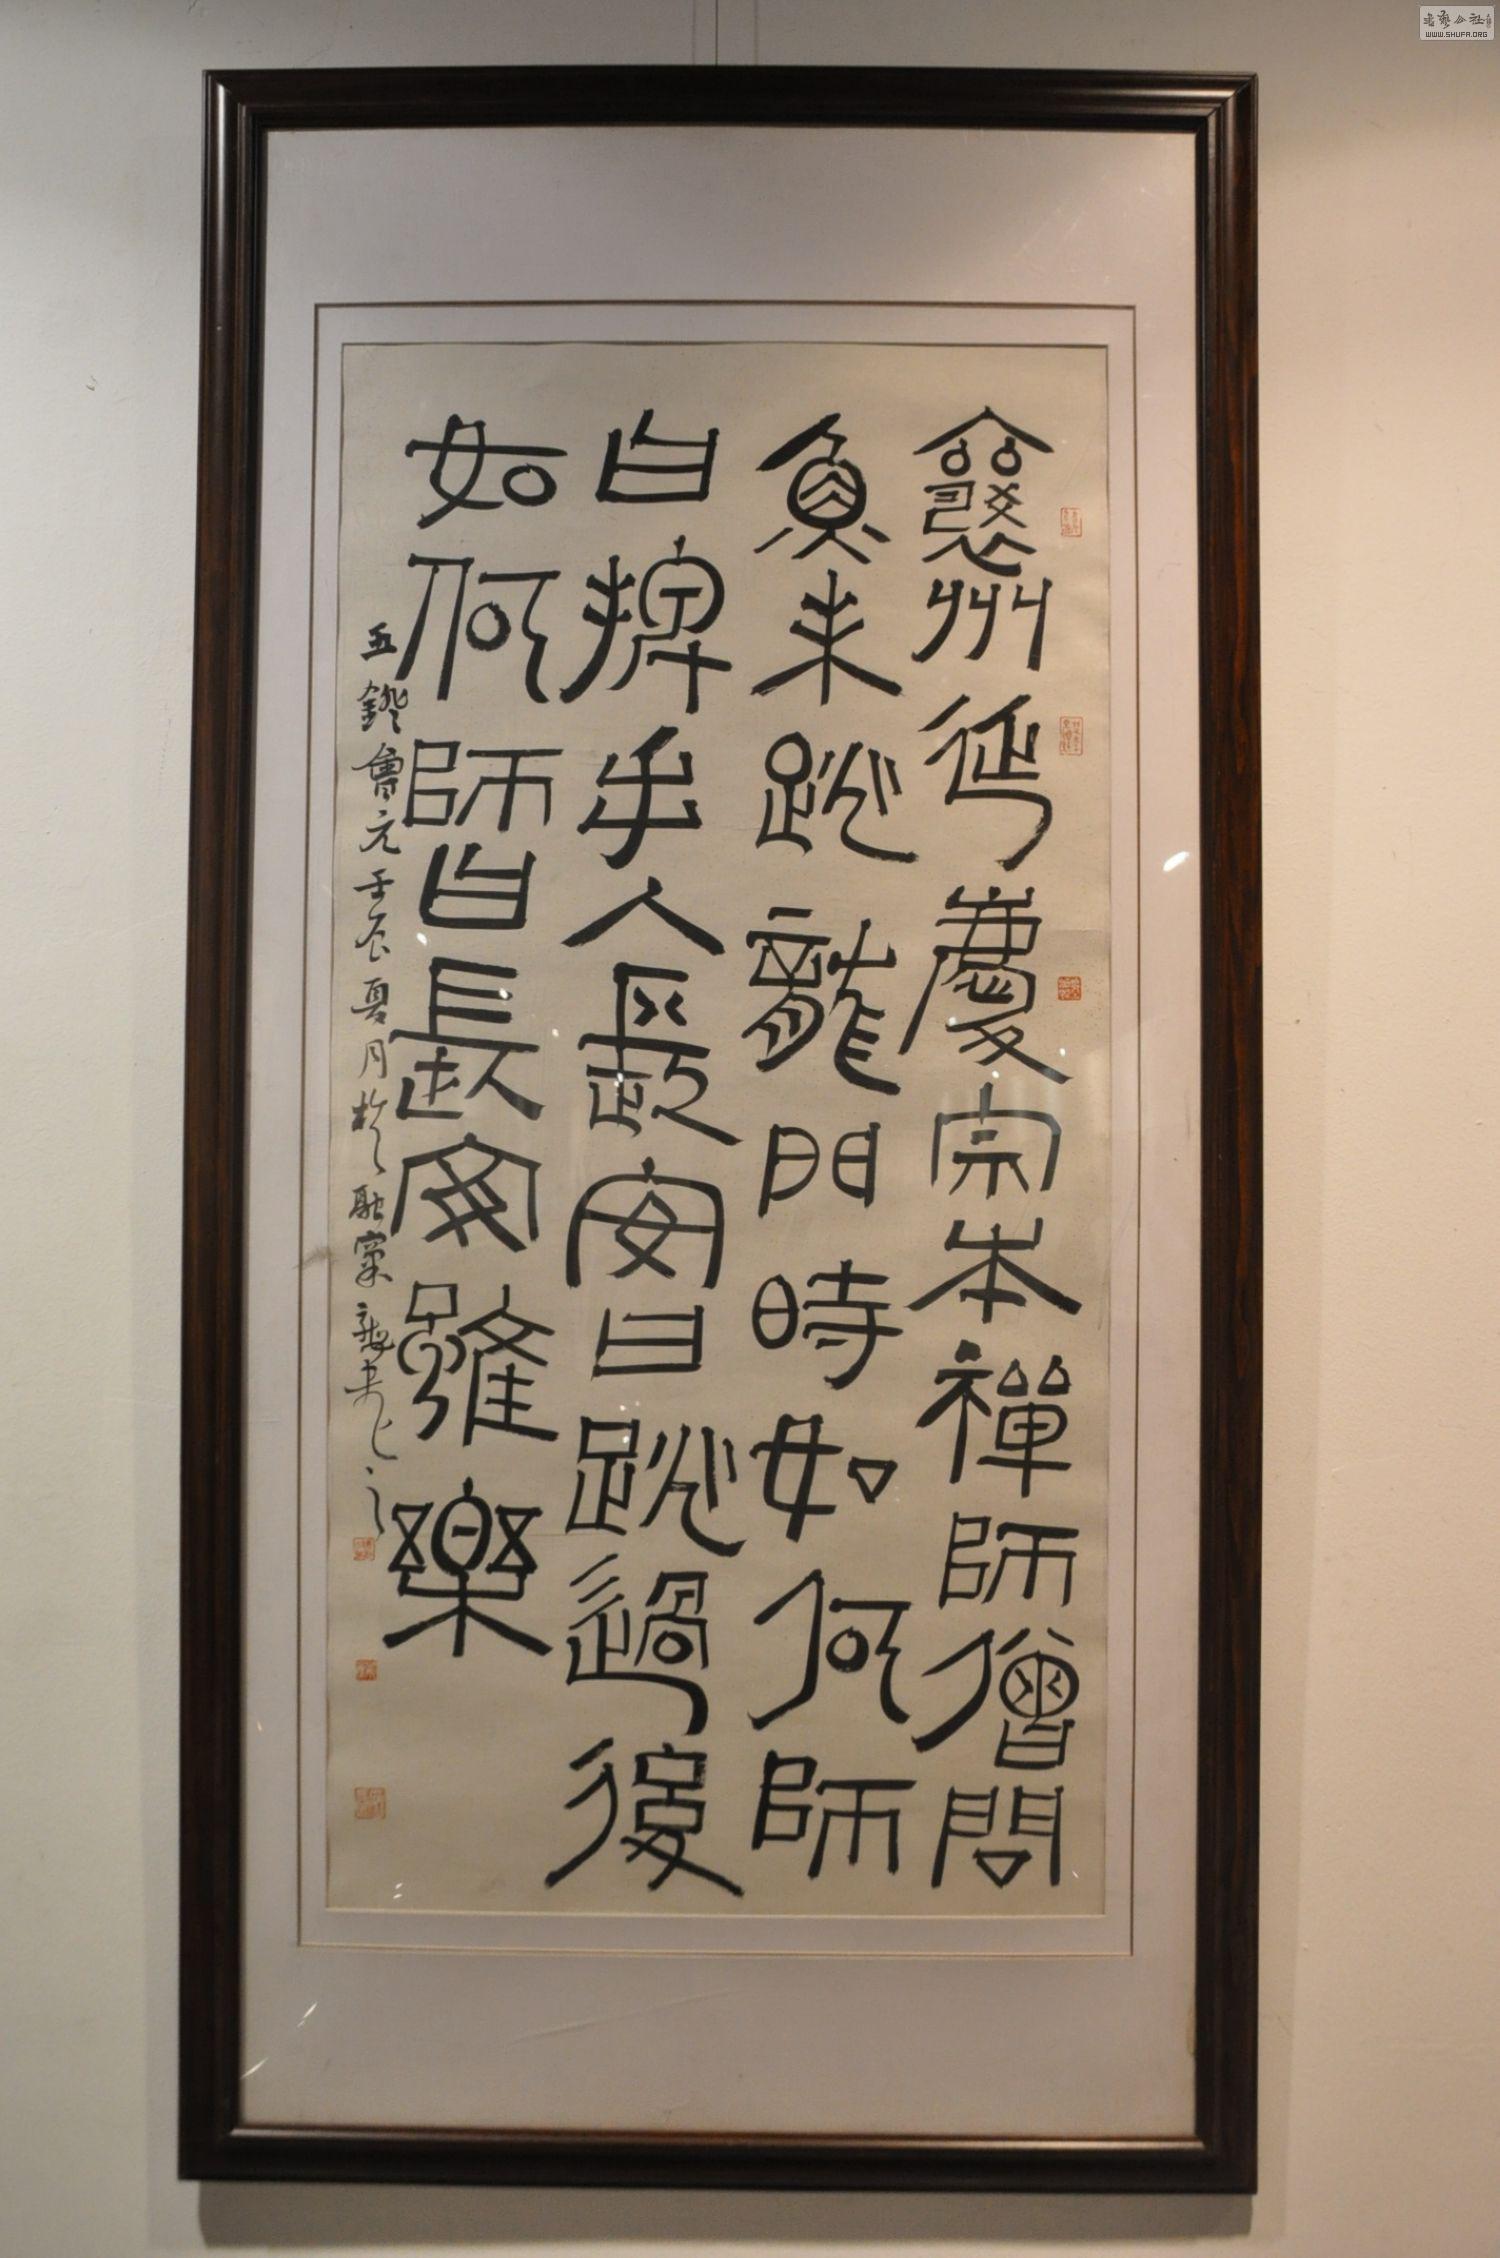 襄州延慶宗本禪師僧問
魚未跳龍門時如何師
曰捭手入長安曰跳過後
如何師曰長安雖樂
五鐙會元壬辰夏月於
書藝公社
WWW.SHUFA.ORG